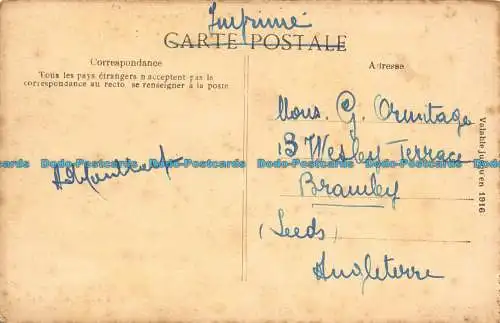 Imprimé
CARTE POSTALE
Correspondance
Tous les pays étrangers n'acceptent pas la
correspondance au recto, se renseigner à la poste
Adresse
Mons. G. Ormitage
13 Wesley Terrace
Bramley
(Leeds)
Angleterre
Valable jusqu'en 1916
Dodo-Postcards Dodo-Postcards Dodo-Postcards Dodo-Postcards Dodo-Postcards